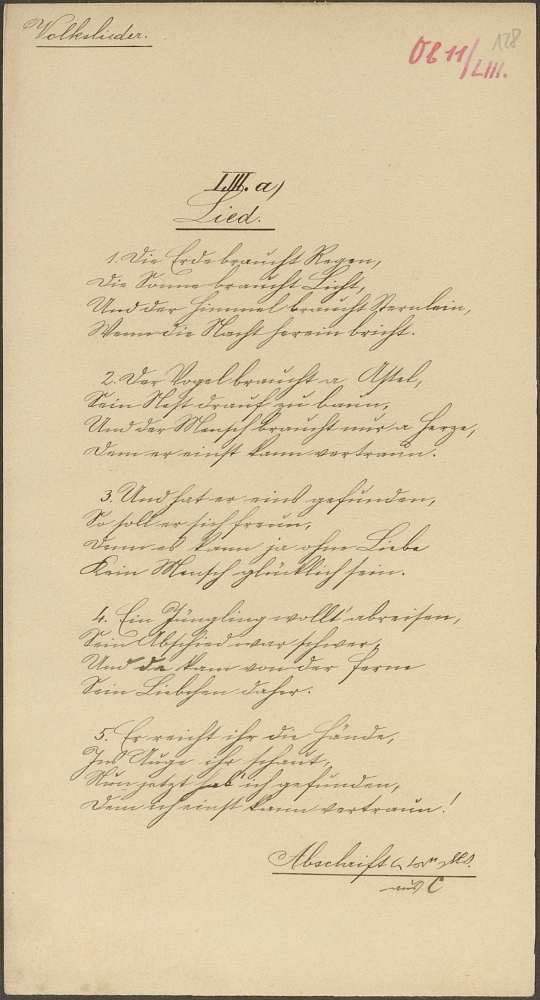 Volkslieder.
128
Ob 11/LIII.
LIII. a)
Lied.
1. Die Erde braucht Regen,
Die Sonne braucht Licht,
Und der Himmel braucht Sternlein,
Wenn die Nacht herein bricht.
2. Der Vogel braucht a Astel,
Sein Nest drauf zu baun,
Und der Mensch braucht nur a Herze,
Dem er einst kann vertraun.
3. Und hat er eins gefunden,
So soll er sich freun,
Denn es kann ja ohne Liebe
Kein Mensch glücklich sein.
4. Ein Jüngling wollt' abreisen,
Sein Abschied war schwer,
Und da kam von der Ferne
Sein Liebchen daher.
5. Er reicht ihr die Hände,
Ins Auge ihr schaut,
Nun jetzt hab' ich gefunden,
Dem ich einst kann vertraun!
Abschrift
aus C